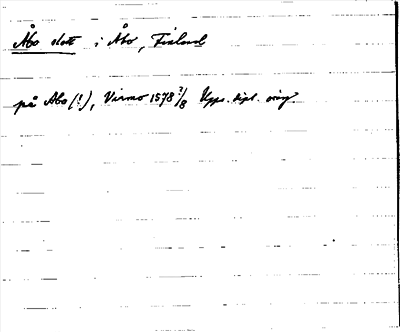 Åbo slott i Åbo, Finland
på Abo (!), Virmo 1578 7/8 Upps. dipl. orig.